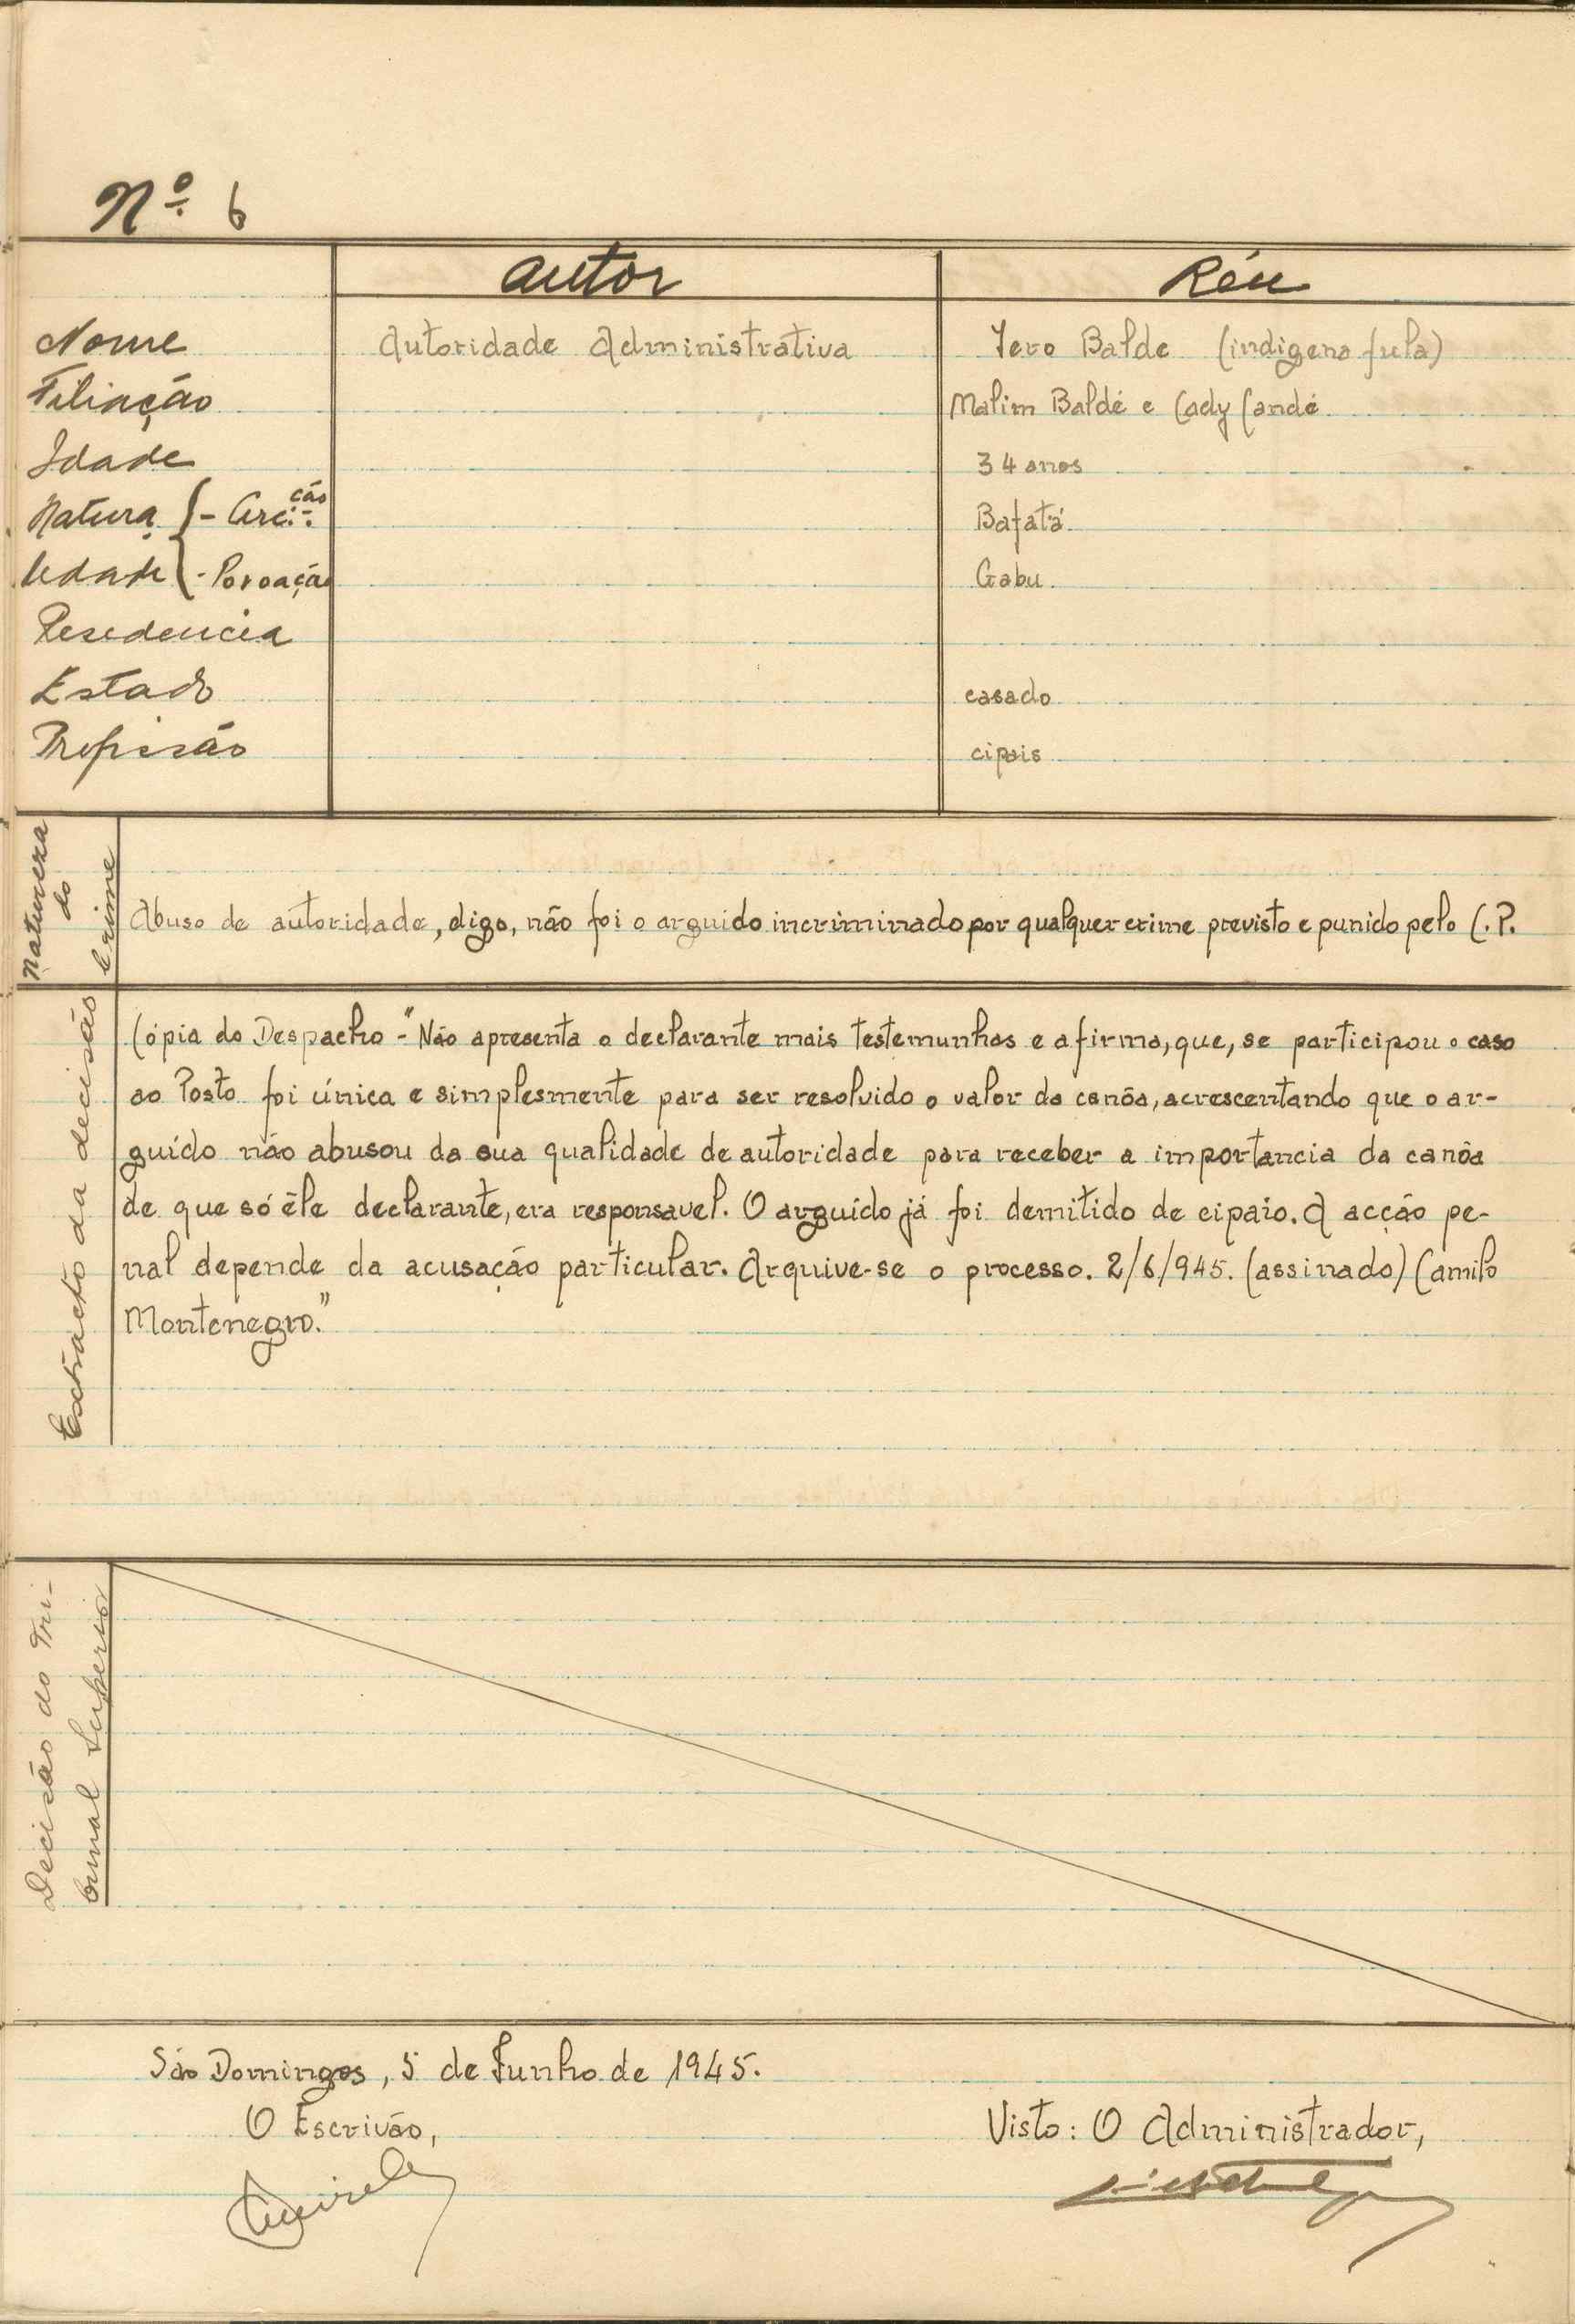 Nº 6
Autor
Réu
Nome Autoridade Administrativa Iero Balde (indigena fula)
Filiação Malim Baldé e Cady Candé
Idade 34 anos
Natura - Circ.ção Bafatá
lidade - Povoação Gabu
Residencia
Estado casado
Profissão cipais
Natureza do crime
Abuso de autoridade, digo, não foi o arguido incriminado por qualquer crime previsto e punido pelo C.P.
Extracto da decisão
Cópia do Despacho - "Não apresenta o declarante mais testemunhas e afirma, que, se participou o caso
ao Posto foi única e simplesmente para ser resolvido o valor da canôa, acrescentando que o ar-
guido não abusou da sua qualidade de autoridade para receber a importancia da canôa
de que só êle declarante, era responsavel. O arguido já foi demitido de cipaio. A acção pe-
nal depende da acusação particular. Arquive-se o processo. 2/6/945. (assinado) Camilo
Montenegro."
Decisão do Tri-
bunal Superior
São Domingos, 5 de Junho de 1945.
O Escrivão,
Visto: O Administrador,